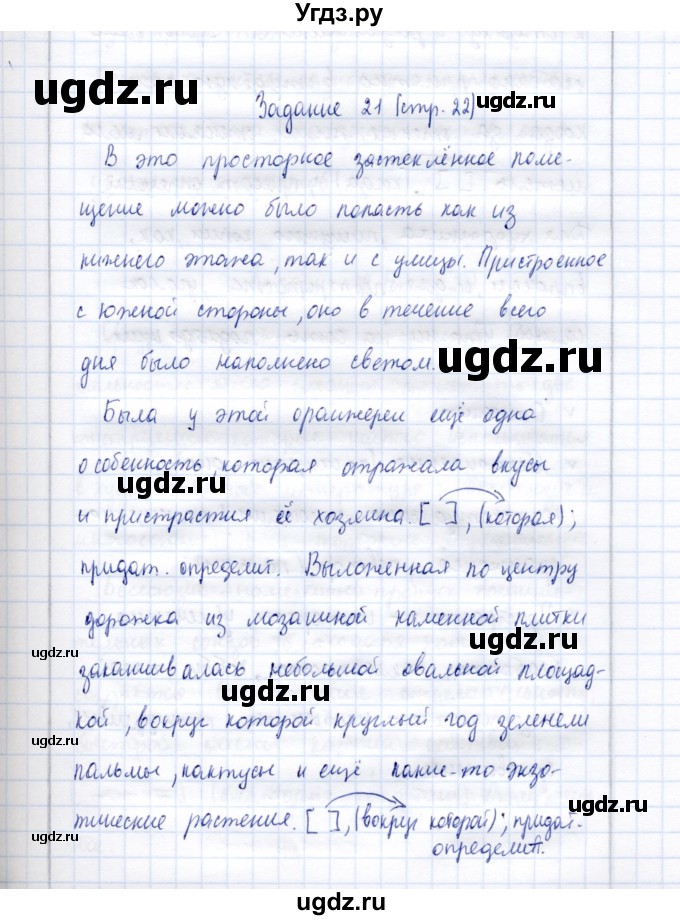 Угдз.ру
ugdz.ru
Задание 21 (стр. 22) ugdz.ru
В это просторное застеклённое поме-
щение можно было попасть как из
нижнего этажа, так и с улицы. Пристроенное
с южной стороны, оно в течение всего
дня было наполнено светом. ugdz.ru
Была у этой оранжереи ещё одна
особенность, которая отражала вкусы
ugdz.ru
и пристрастия её хозяина. [ ], (которая);
придат. определит. Выложенная по центру
дорожка из мозаичной каменной плитки
ugdz.ru ugdz.ru
заканчивалась небольшой овальной площад-
ugdz.ru
кой, вокруг которой круглый год зеленели
ugdz.ru
пальмы, кактусы и ещё какие-то экзо-
ugdz.ru
тические растения. [ ], (вокруг которой); придат.
ugdz.ru
определит.
ugdz.ru ugdz.ru